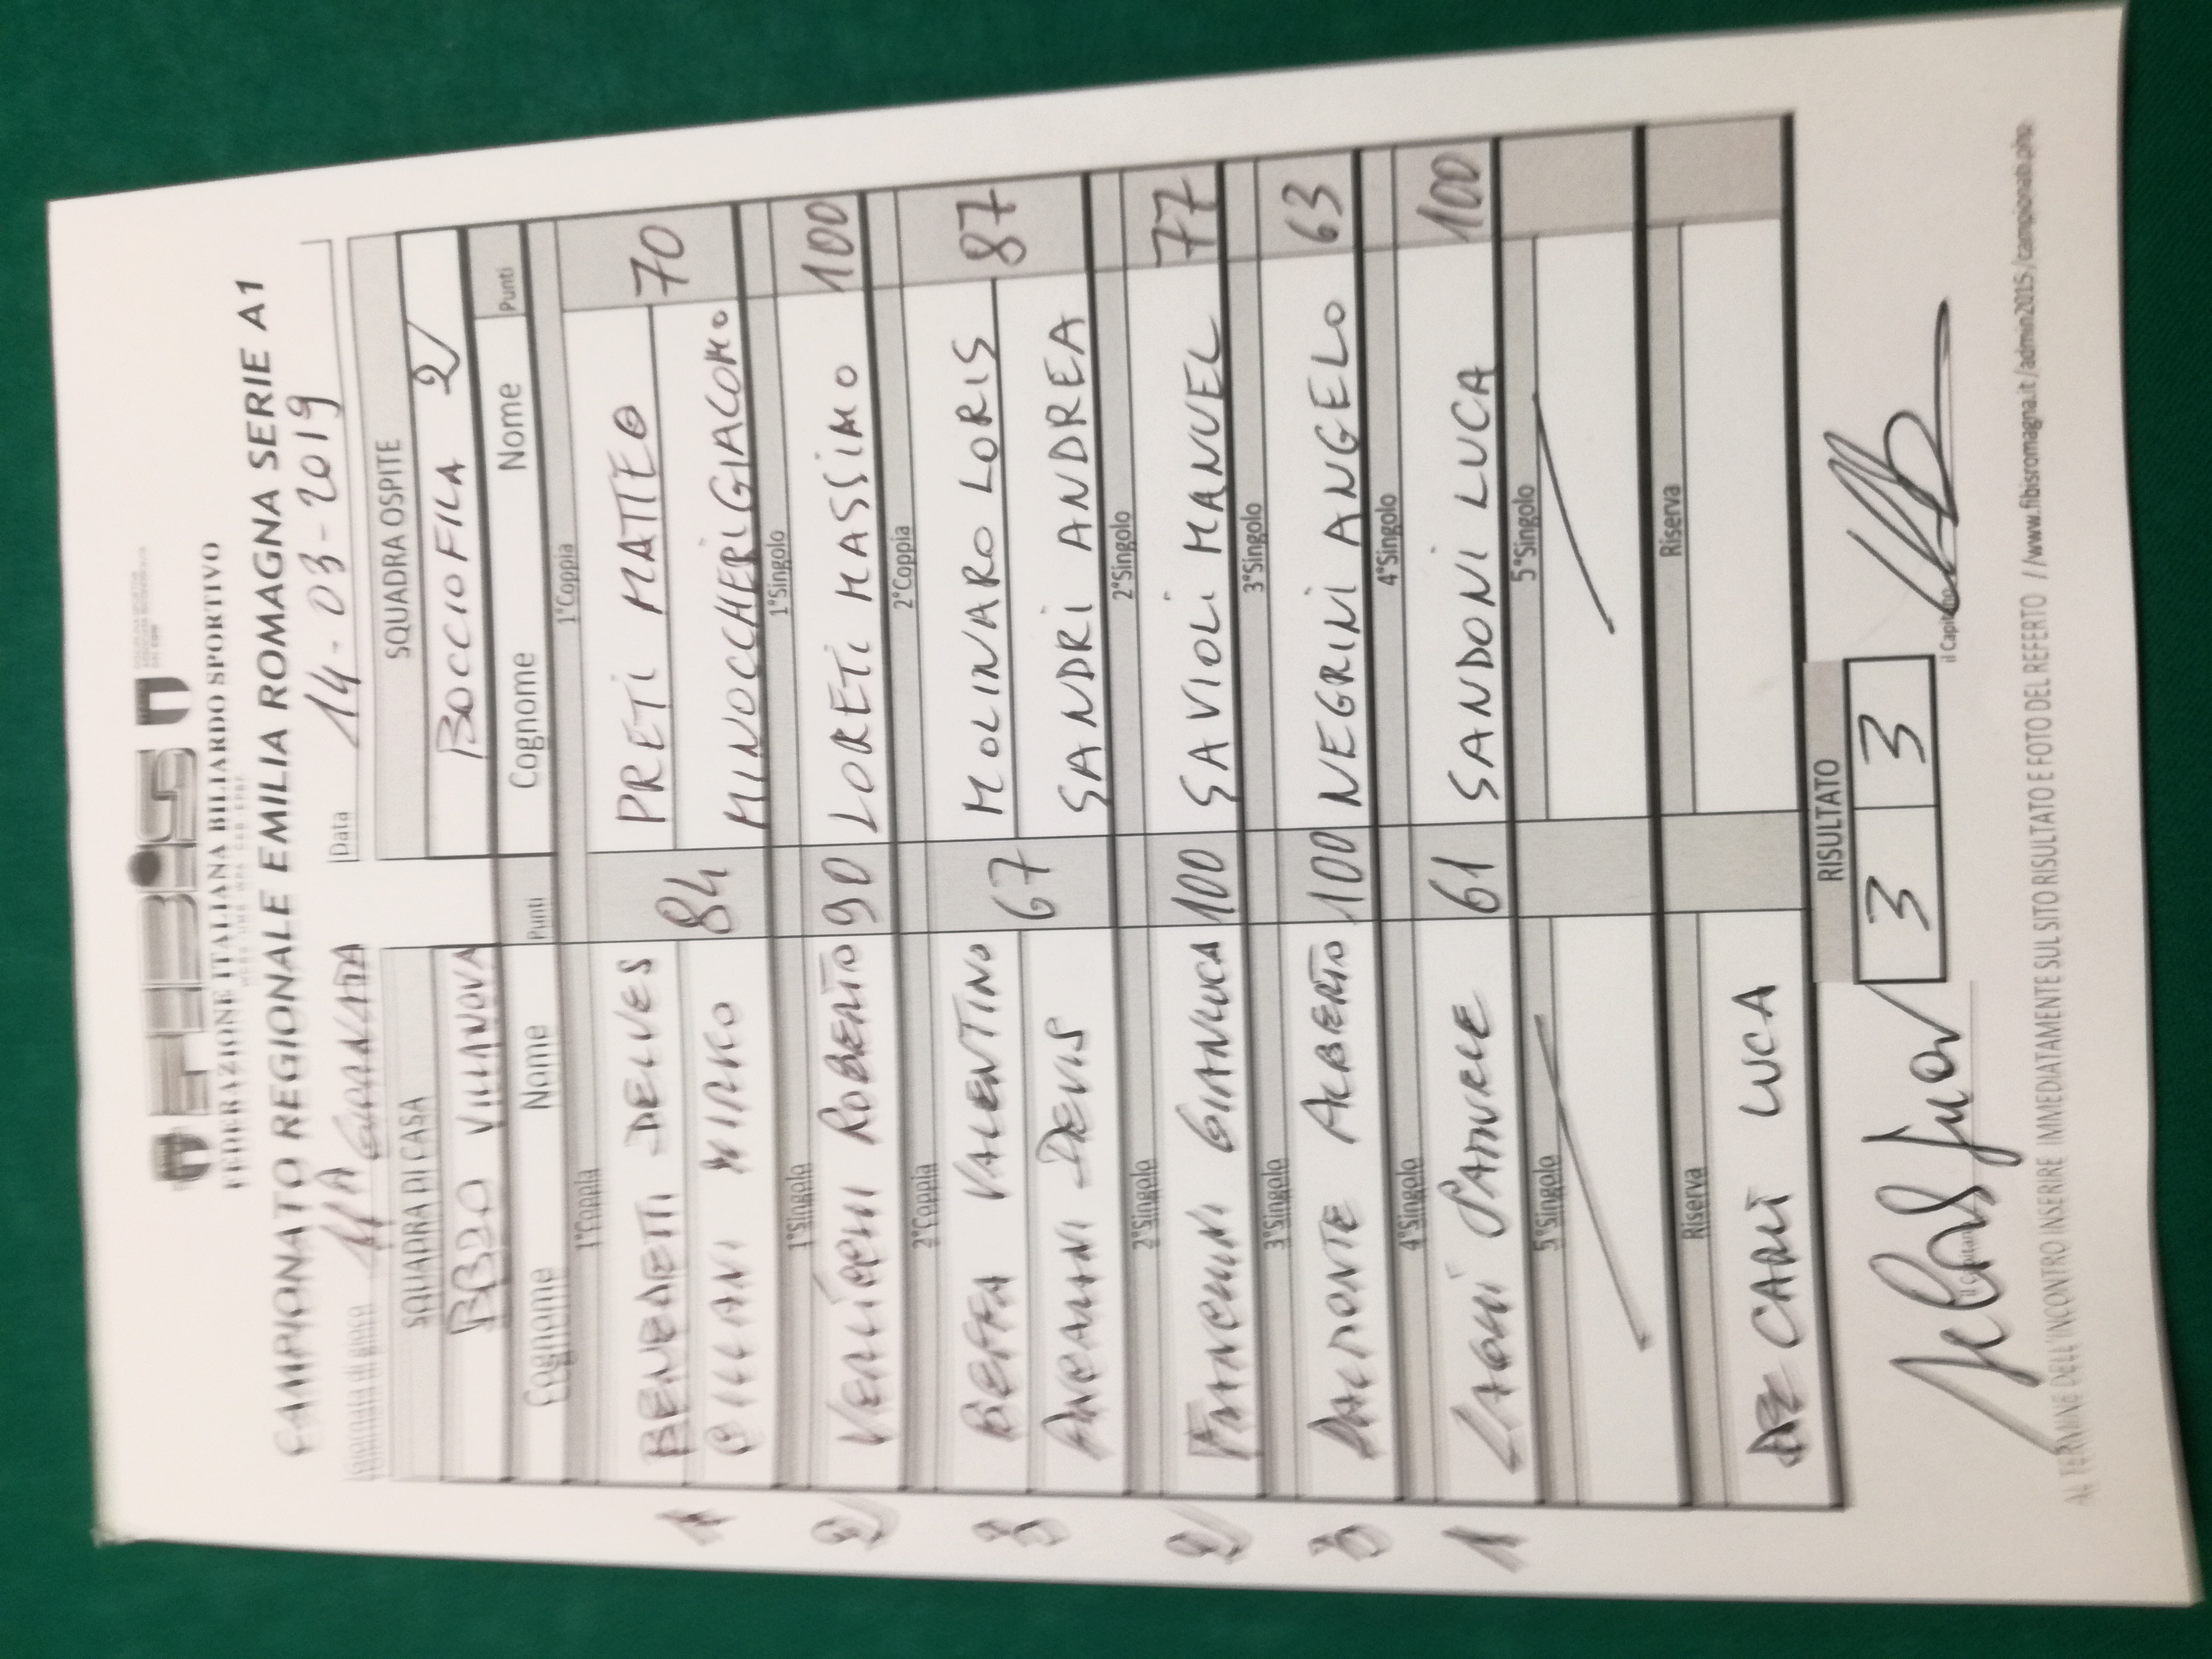 FIBiS
FEDERAZIONE ITALIANA BILIARDO SPORTIVO
CAMPIONATO REGIONALE EMILIA ROMAGNA SERIE A1
Giornata di gara 11A GIORNATA Data 14-03-2019
SQUADRA DI CASA SQUADRA OSPITE
VILLANOVA BOCCIOFILA 2
Cognome Nome Punti Cognome Nome Punti
1°Coppia 1°Coppia
BENEDETTI DELVES PRETI MATTEO
1 84 70
MIRKO MINOCCHERI GIACOMO
1°Singolo 1°Singolo
2 VERLICCHI ROBERTO 90 LORETI MASSIMO 100
2°Coppia 2°Coppia
BEFFA VALENTINO MOLINARO LORIS
3 67 87
DEVIS SANDRI ANDREA
2°Singolo 2°Singolo
2 GIANLUCA 100 SAVIOLI MANUEL 77
3°Singolo 3°Singolo
3 DALMONTE ALBERTO 100 NEGRINI ANGELO 63
4°Singolo 4°Singolo
1 LAGHI SAMUELE 61 SANDONI LUCA 100
5°Singolo 5°Singolo
Riserva Riserva
LUCA
RISULTATO
3 3
il Capitano il Capitano
AL TERMINE DELL'INCONTRO INSERIRE IMMEDIATAMENTE SUL SITO RISULTATO E FOTO DEL REFERTO //www.fibisromagna.it/admin2015/campionato.php